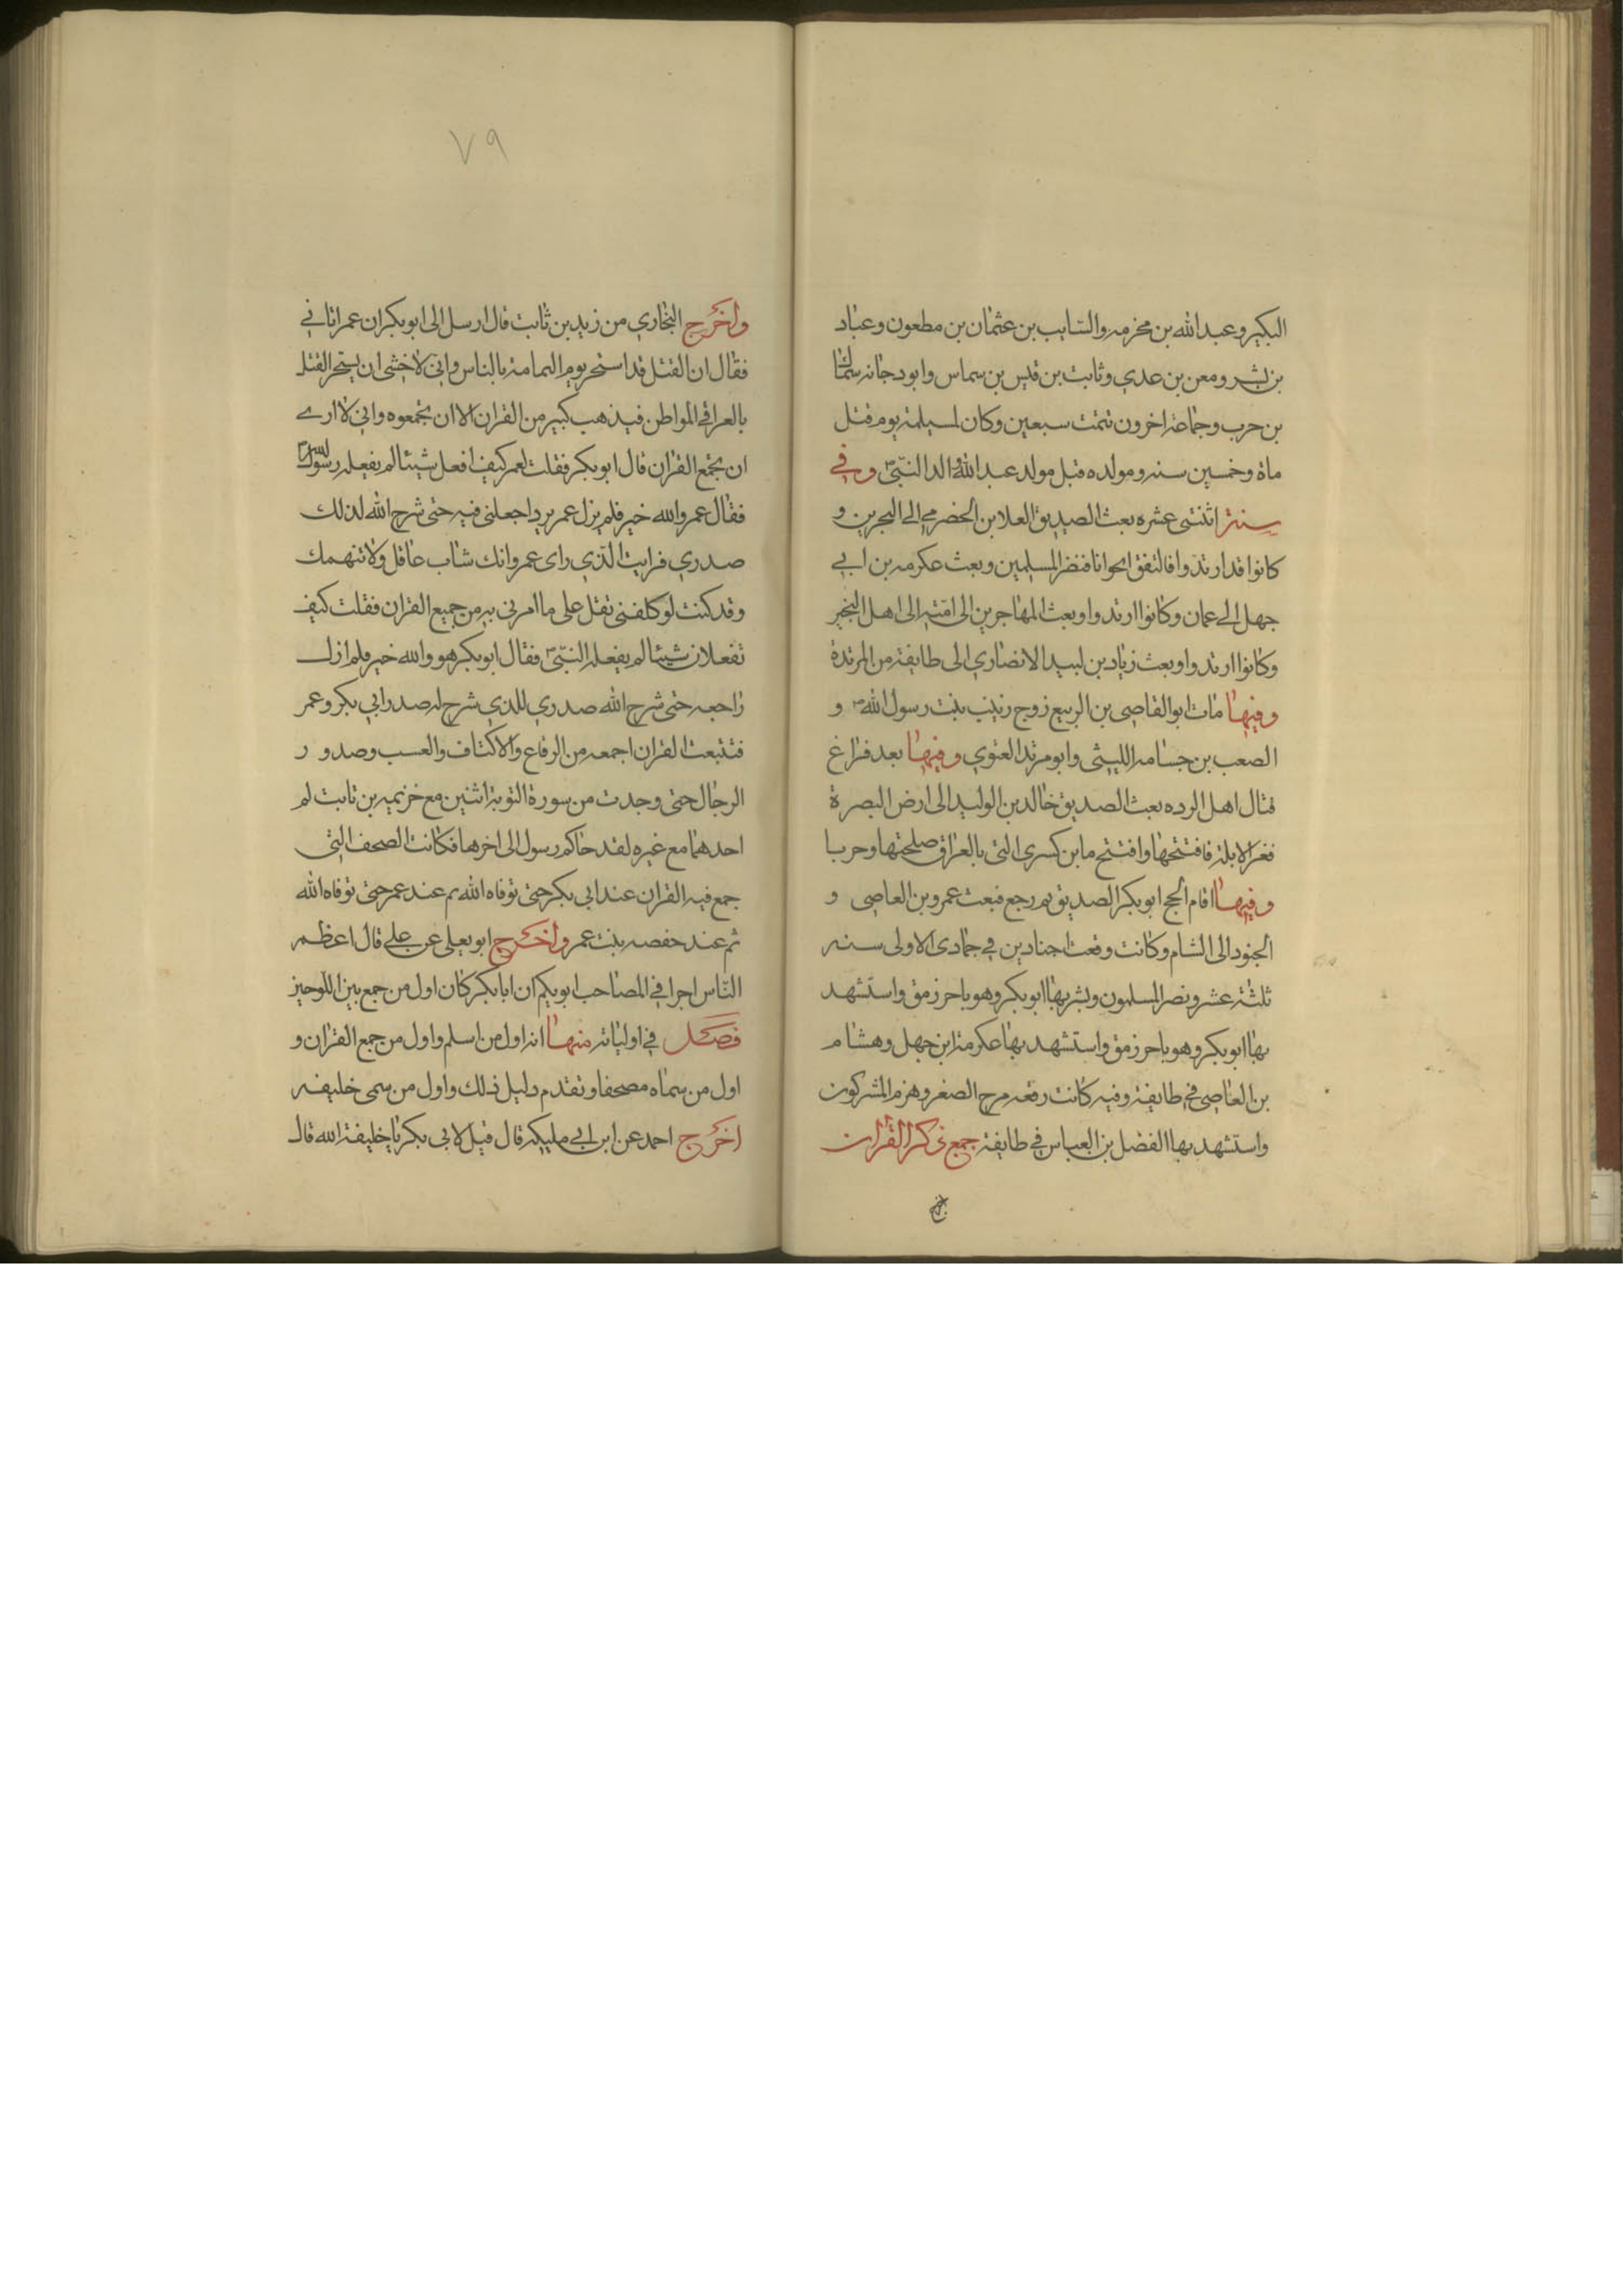 البكير وعبد الله بن مخرمه والسايب بن عثمان بن مطعون وعباد
بن بشر ومعن بن عدي وثابت بن قيس بن سماس وابو دجانه سماك
بن حرب وجماعة اخرون تتمت سبعين وكان لمسيلمة يوم قتل
ماة وخمسين سنه ومولده قبل مولد عبد الله والد النبي وفي
سنة اثنتى عشره بعث الصديق العلا بن الحضرمي الى البحرين و
كانوا قد ارتدوا فالتفق ابحوانا فنضر المسلمين وبعث عكرمه بن ابي
جهل الي عمان وكانوا ارتدوا وبعث المهاجرين الى امته الى اهل النجير
وكانوا ارتدوا وبعث زياد بن لبيد الانصاري الى طايفة من المرتدة
وفيها مات ابو القاصى بن الربيع زوج زينب بنت رسول الله و
الصعب بن جسامه الليثى وابو مرتد العنوي وفيها بعد فراغ
قتال اهل الرده بعث الصديق خالد بن الوليد الى ارض البصرة
فغز الابلة فافتتحها وافتتح ما بن كسرى التي بالعراق صلحتها وحربا
وفيها اقام الحج ابو بكر الصديق ثم رجع فبعث عمرو بن العاصى و
الجنود الى الشام وكانت وقعت اجنادين في جمادى الاولى سنه
ثلثة عشر ونصر المسلمون وبشر بها ابو بكر وهو باحر زمق واستشهد
بها ابو بكر وهو باحر زمق واستشهد بها عكرمة ابن جهل وهشام
بن العاصي في طايفة وفيه كانت رقعه مرج الصغر وهزم المشركون
واستشهد بها الفضل بن العباس في طايفة جمع ذكر القران
٧٩
واخرج البخاري من زيد بن ثابت قال ارسل الى ابو بكر ان عمر اتاني
فقال ان القتل قد استحر يوم اليمامة بالناس واني لاخشى ان يستحر القتل
بالعرا في المواطن فيذهب كبير من القران الا ان تجمعوه واني لا ارى
ان تجمع القران قال ابو بكر فقلت لعمر كيف افعل شيئا لم يفعله رسول الله
فقال عمر والله خير فلم يزل عمر يرداجعلنى فيه حتى شرح الله لذلك
صدري فرايت الذي راى عمر وانك شاب عاقل ولا تنهمك
وقد كنت لو كلفنى تقل على ما امرنى به من جميع القران فقلت كيف
تفعلان شيئا لم يفعله النبي فقال ابو بكر هو والله خير فلم ازل
راجعه حتى شرح الله صدري للذي شرح له صدر ابي بكر وعمر
فتتبعت القران اجمعه من الرقاع والاكتاف والعسب وصدور
الرجال حتى وجدت من سورة التوبة اثنين مع خزيمه بن ثابت لم
احدهما مع غيره لقد حاكم رسول الى اخرها فكانت الصحف التي
جمع فيه القران عند ابي بكر حتى توفاه الله ثم عند عمر حتى توفاه الله
ثم عند حفصه بنت عمر واخرج ابو يعلي عن علي قال اعظم
الناس اجرا في المصاحب ابو بكم ان ابابكر كان اول من جمع بين اللوحيز
فصل في اولياته منها انه اول من اسلم واول من جمع القران و
اول من سماه مصحفا وتقدم دليل ذلك واول من سمى خليفه
اخرج احمد عن ابن ابي مليكه قال قيل لابي بكر يا خليفة الله قال